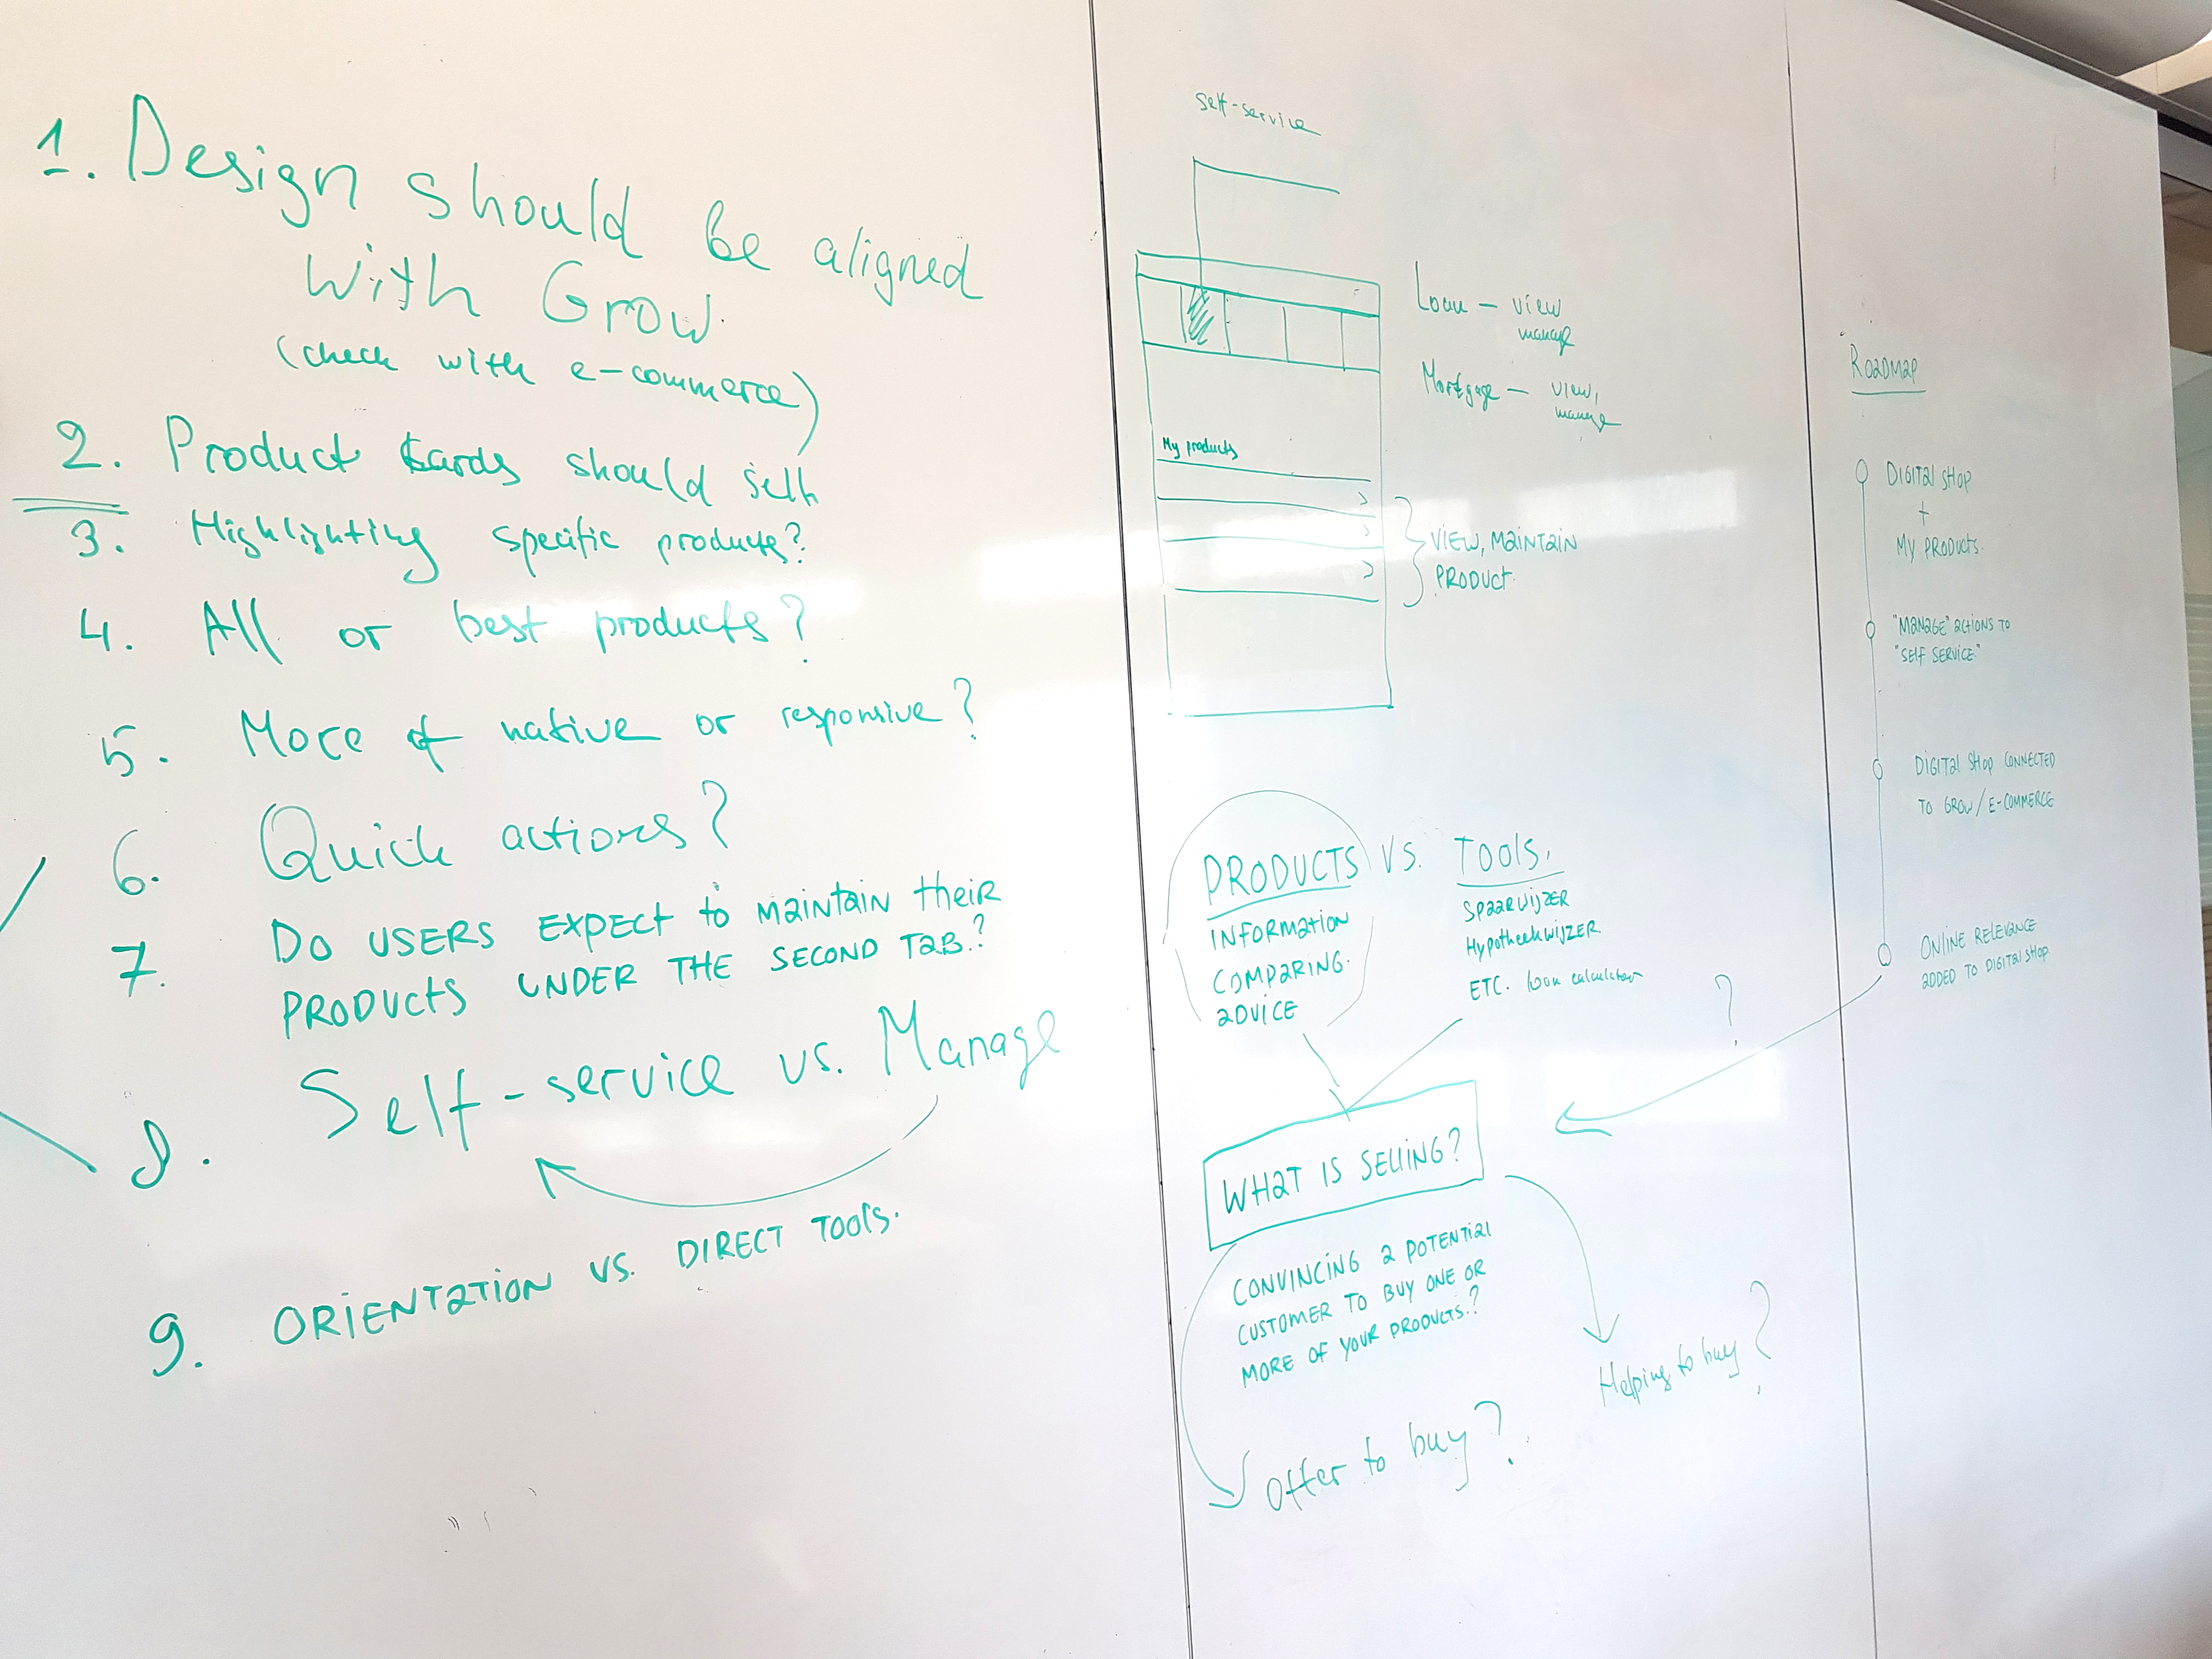 1. Design should be aligned
with Grow.
(check with e-commerce)
2. Product cards should sell
3. Highlighting specific products?
4. All or best products?
5. More of native or responsive?
6. Quick actions?
7. DO USERS EXPECT to MAINTAIN their
PRODUCTS UNDER THE SECOND TAB?
8. Self-service vs. Manage
9. ORIENTATION VS. DIRECT TOOLS.
self-service
Loan - view
manage
Mortgage - view,
manage
My products
VIEW, MAINTAIN
PRODUCT.
PRODUCTS VS. TOOLS.
INFORMATION
COMPARING.
ADVICE
SPAARWIJZER
HypotheekWIJZER.
ETC. loan calculator
?
WHAT IS SELLING?
CONVINCING A POTENTIAL
CUSTOMER TO BUY ONE OR
MORE OF YOUR PRODUCTS.?
Offer to buy?
Helping to buy?
ROADMAP
DIGITAL SHOP
+
MY PRODUCTS.
"MANAGE" ACTIONS TO
"SELF SERVICE"
DIGITAL SHOP CONNECTED
TO GROW/E-COMMERCE
ONLINE RELEVANCE
ADDED TO DIGITAL SHOP